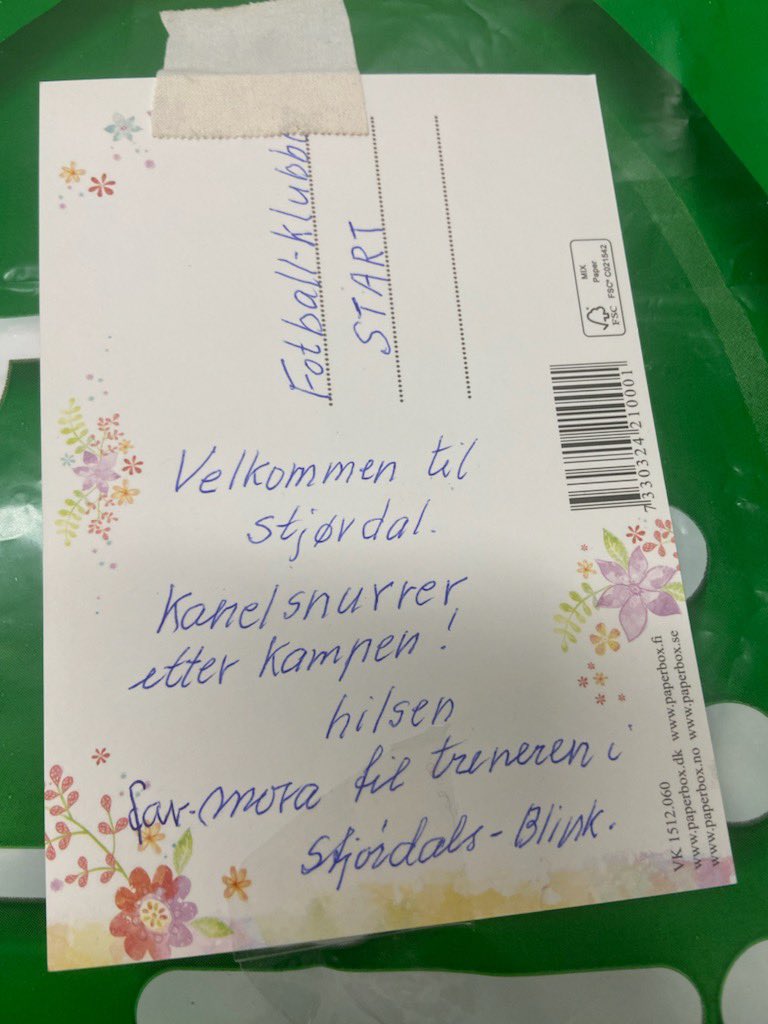 Fotball-klubbe
START
Velkommen til
stjørdal.
Kanelsnurrer
etter kampen!
hilsen
far-mora til treneren i
Stjørdals-Blink.
MIX
Paper
FSC® C021542
FSC
7330324210001
VK 1512.060
www.paperbox.dk www.paperbox.fi
www.paperbox.no www.paperbox.se